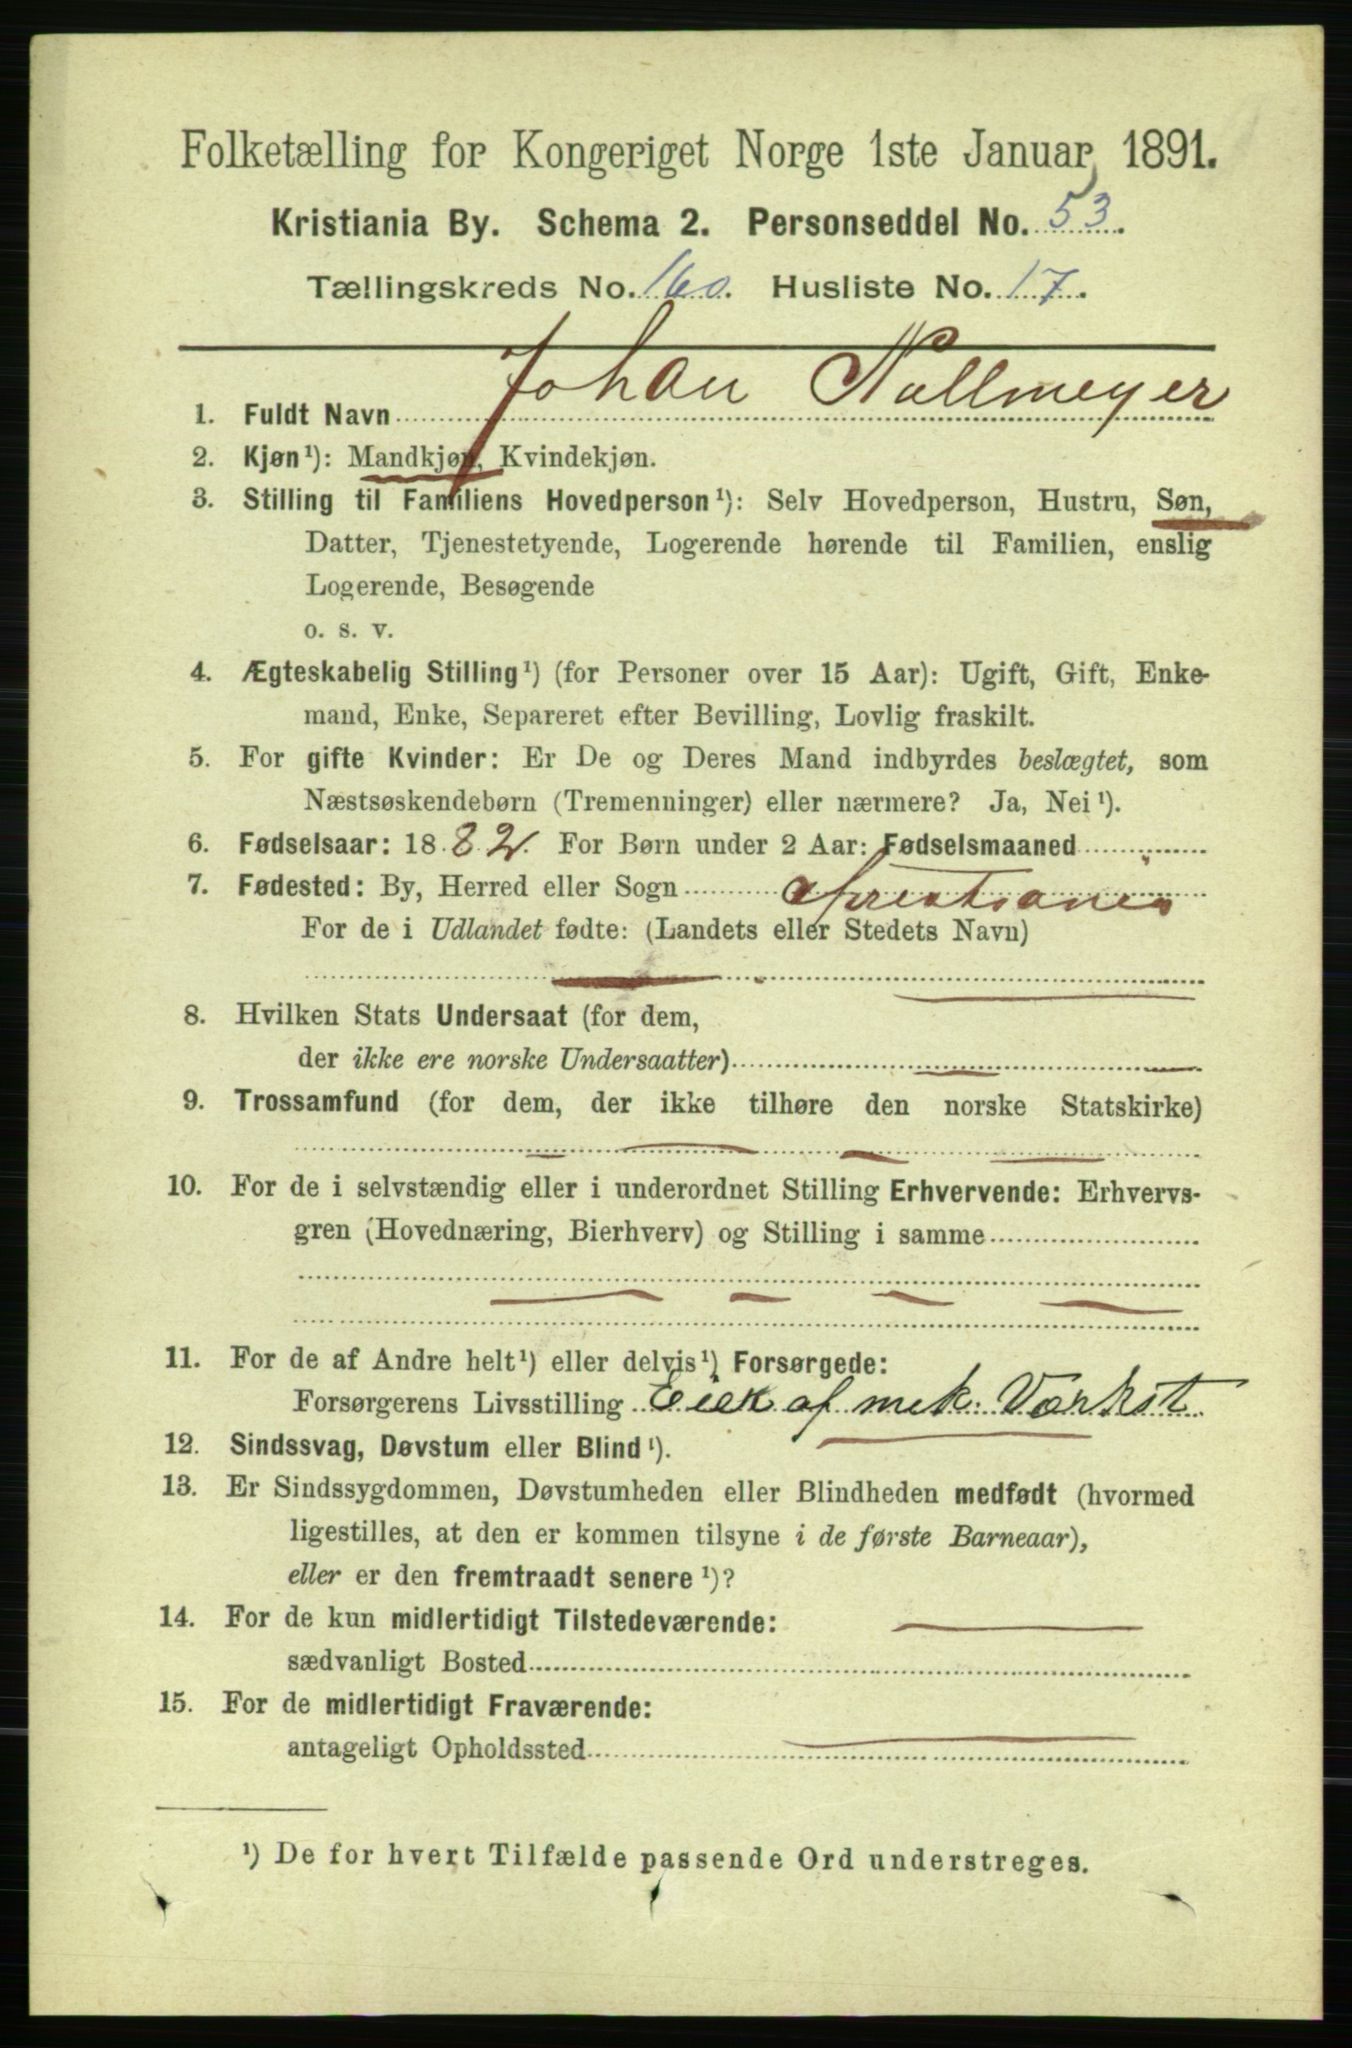 Folketælling for Kongeriget Norge 1ste Januar 1891.
Kristiania By. Schema 2. Personseddel No. 53.
Tællingskreds No. 160. Husliste No. 17.
1. Fuldt Navn Johan Nullmeyer
2. Kjøn¹): Mandkjøn, Kvindekjøn.
3. Stilling til Familiens Hovedperson¹): Selv Hovedperson, Hustru, Søn,
Datter, Tjenestetyende, Logerende hørende til Familien, enslig
Logerende, Besøgende
o. s. v.
4. Ægteskabelig Stilling¹) (for Personer over 15 Aar): Ugift, Gift, Enke-
mand, Enke, Separeret efter Bevilling, Lovlig fraskilt.
5. For gifte Kvinder: Er De og Deres Mand indbyrdes beslægtet, som
Næstsøskendebørn (Tremenninger) eller nærmere? Ja, Nei¹).
6. Fødselsaar: 1882. For Børn under 2 Aar: Fødselsmaaned
7. Fødested: By, Herred eller Sogn
For de i Udlandet fødte: (Landets eller Stedets Navn)
8. Hvilken Stats Undersaat (for dem,
der ikke ere norske Undersaatter)
9. Trossamfund (for dem, der ikke tilhøre den norske Statskirke)
10. For de i selvstændig eller i underordnet Stilling Erhvervende: Erhvervs-
gren (Hovednæring, Bierhverv) og Stilling i samme
11. For de af Andre helt¹) eller delvis¹) Forsørgede:
Forsørgerens Livsstilling Eier af mek. Værkst
12. Sindssvag, Døvstum eller Blind¹).
13. Er Sindssygdommen, Døvstumheden eller Blindheden medfødt (hvormed
ligestilles, at den er kommen tilsyne i de første Barneaar),
eller er den fremtraadt senere¹)?
14. For de kun midlertidigt Tilstedeværende:
sædvanligt Bosted
15. For de midlertidigt Fraværende:
antageligt Opholdssted
¹) De for hvert Tilfælde passende Ord understreges.